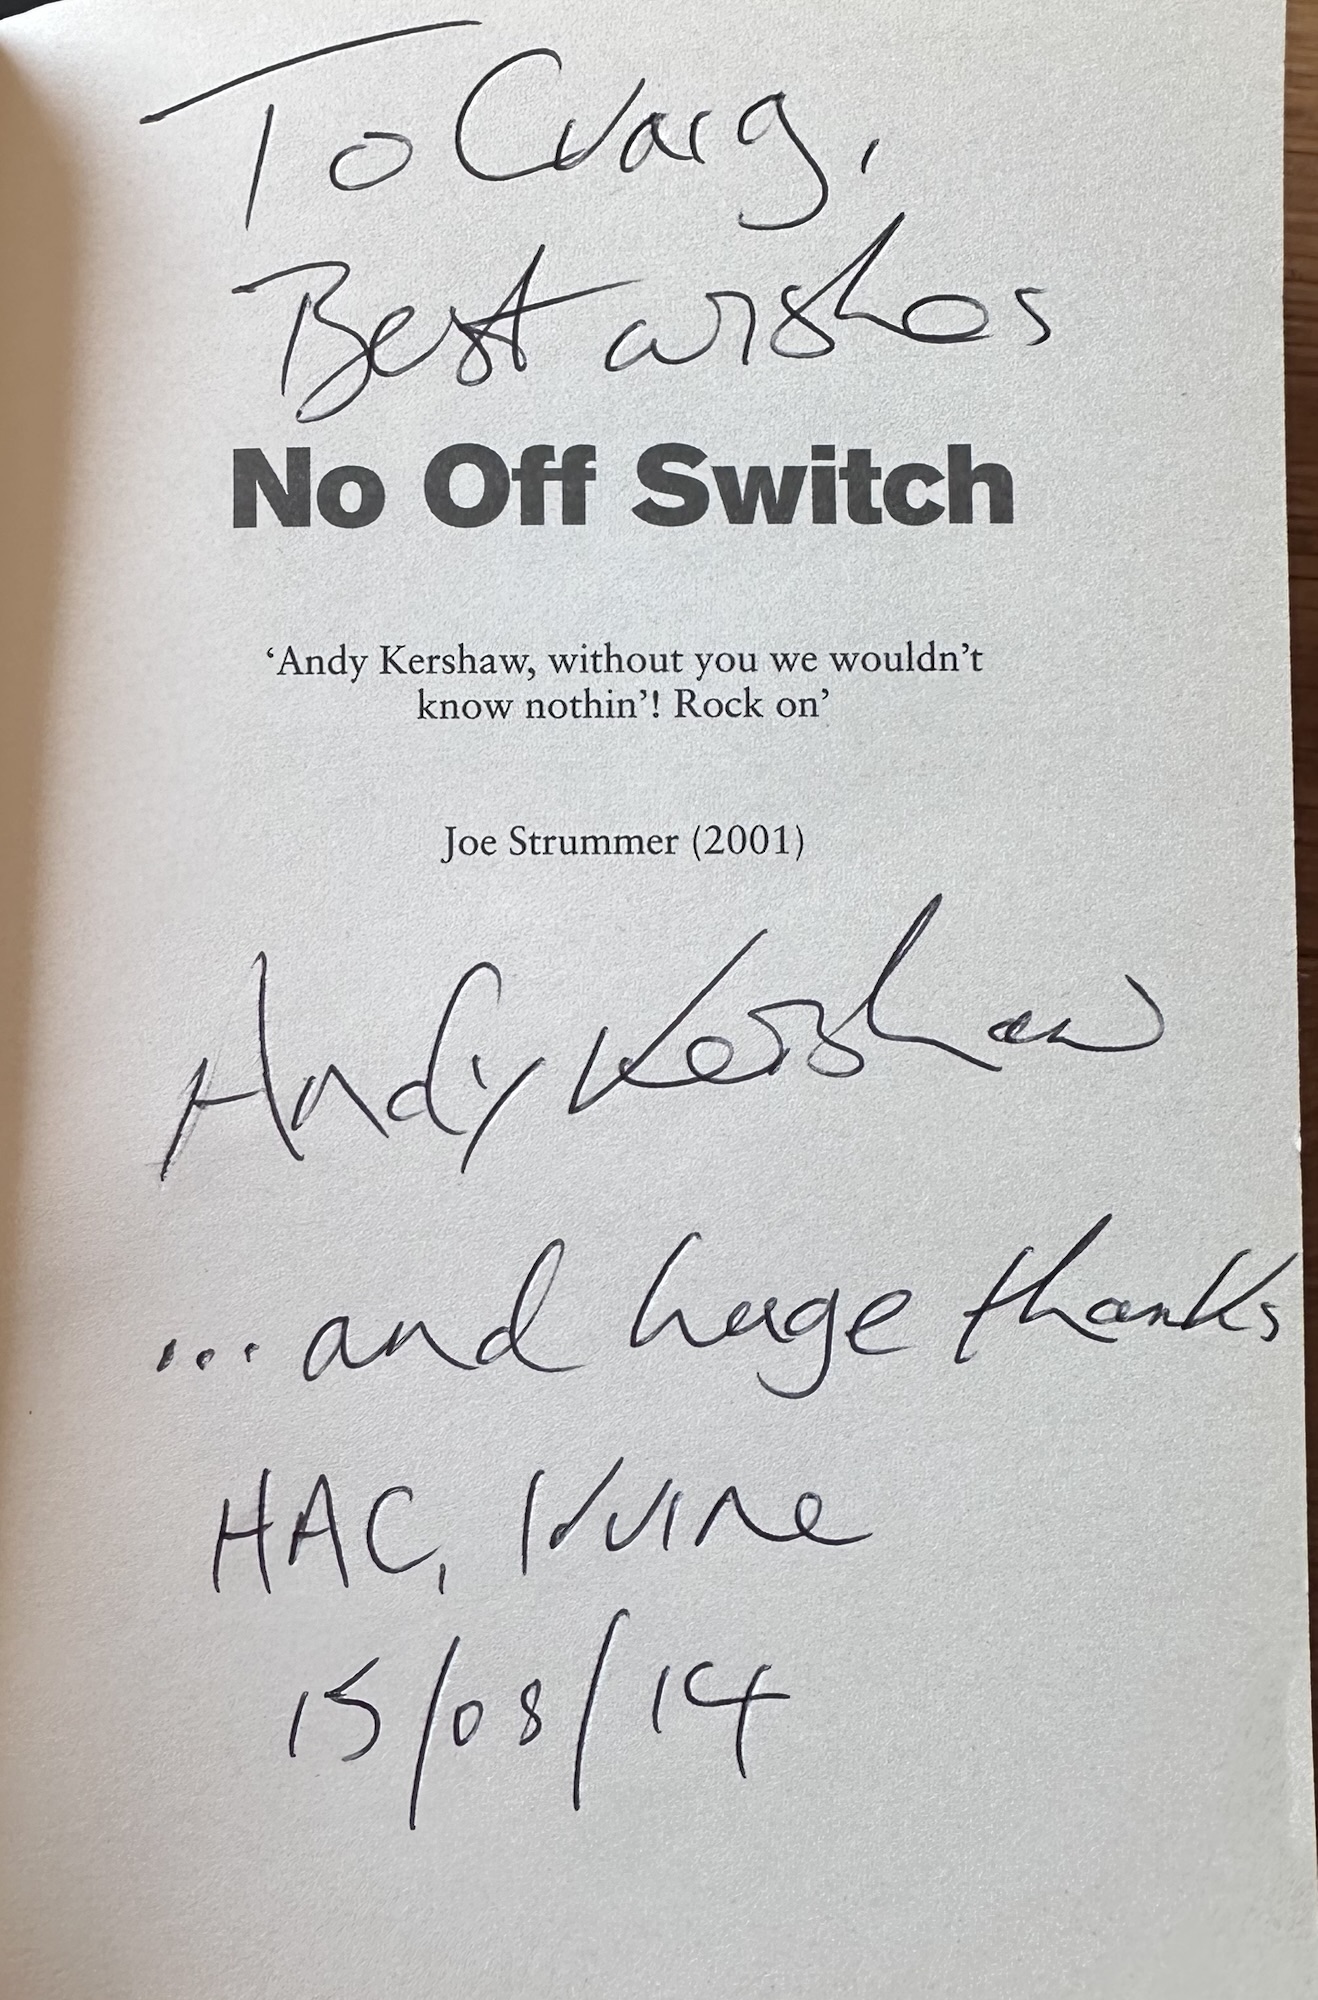 To Craig,
Best wishes
No Off Switch
‘Andy Kershaw, without you we wouldn’t
know nothin’! Rock on’
Joe Strummer (2001)
Andy Kershaw
... and huge thanks
HAC, Irvine
15/08/14